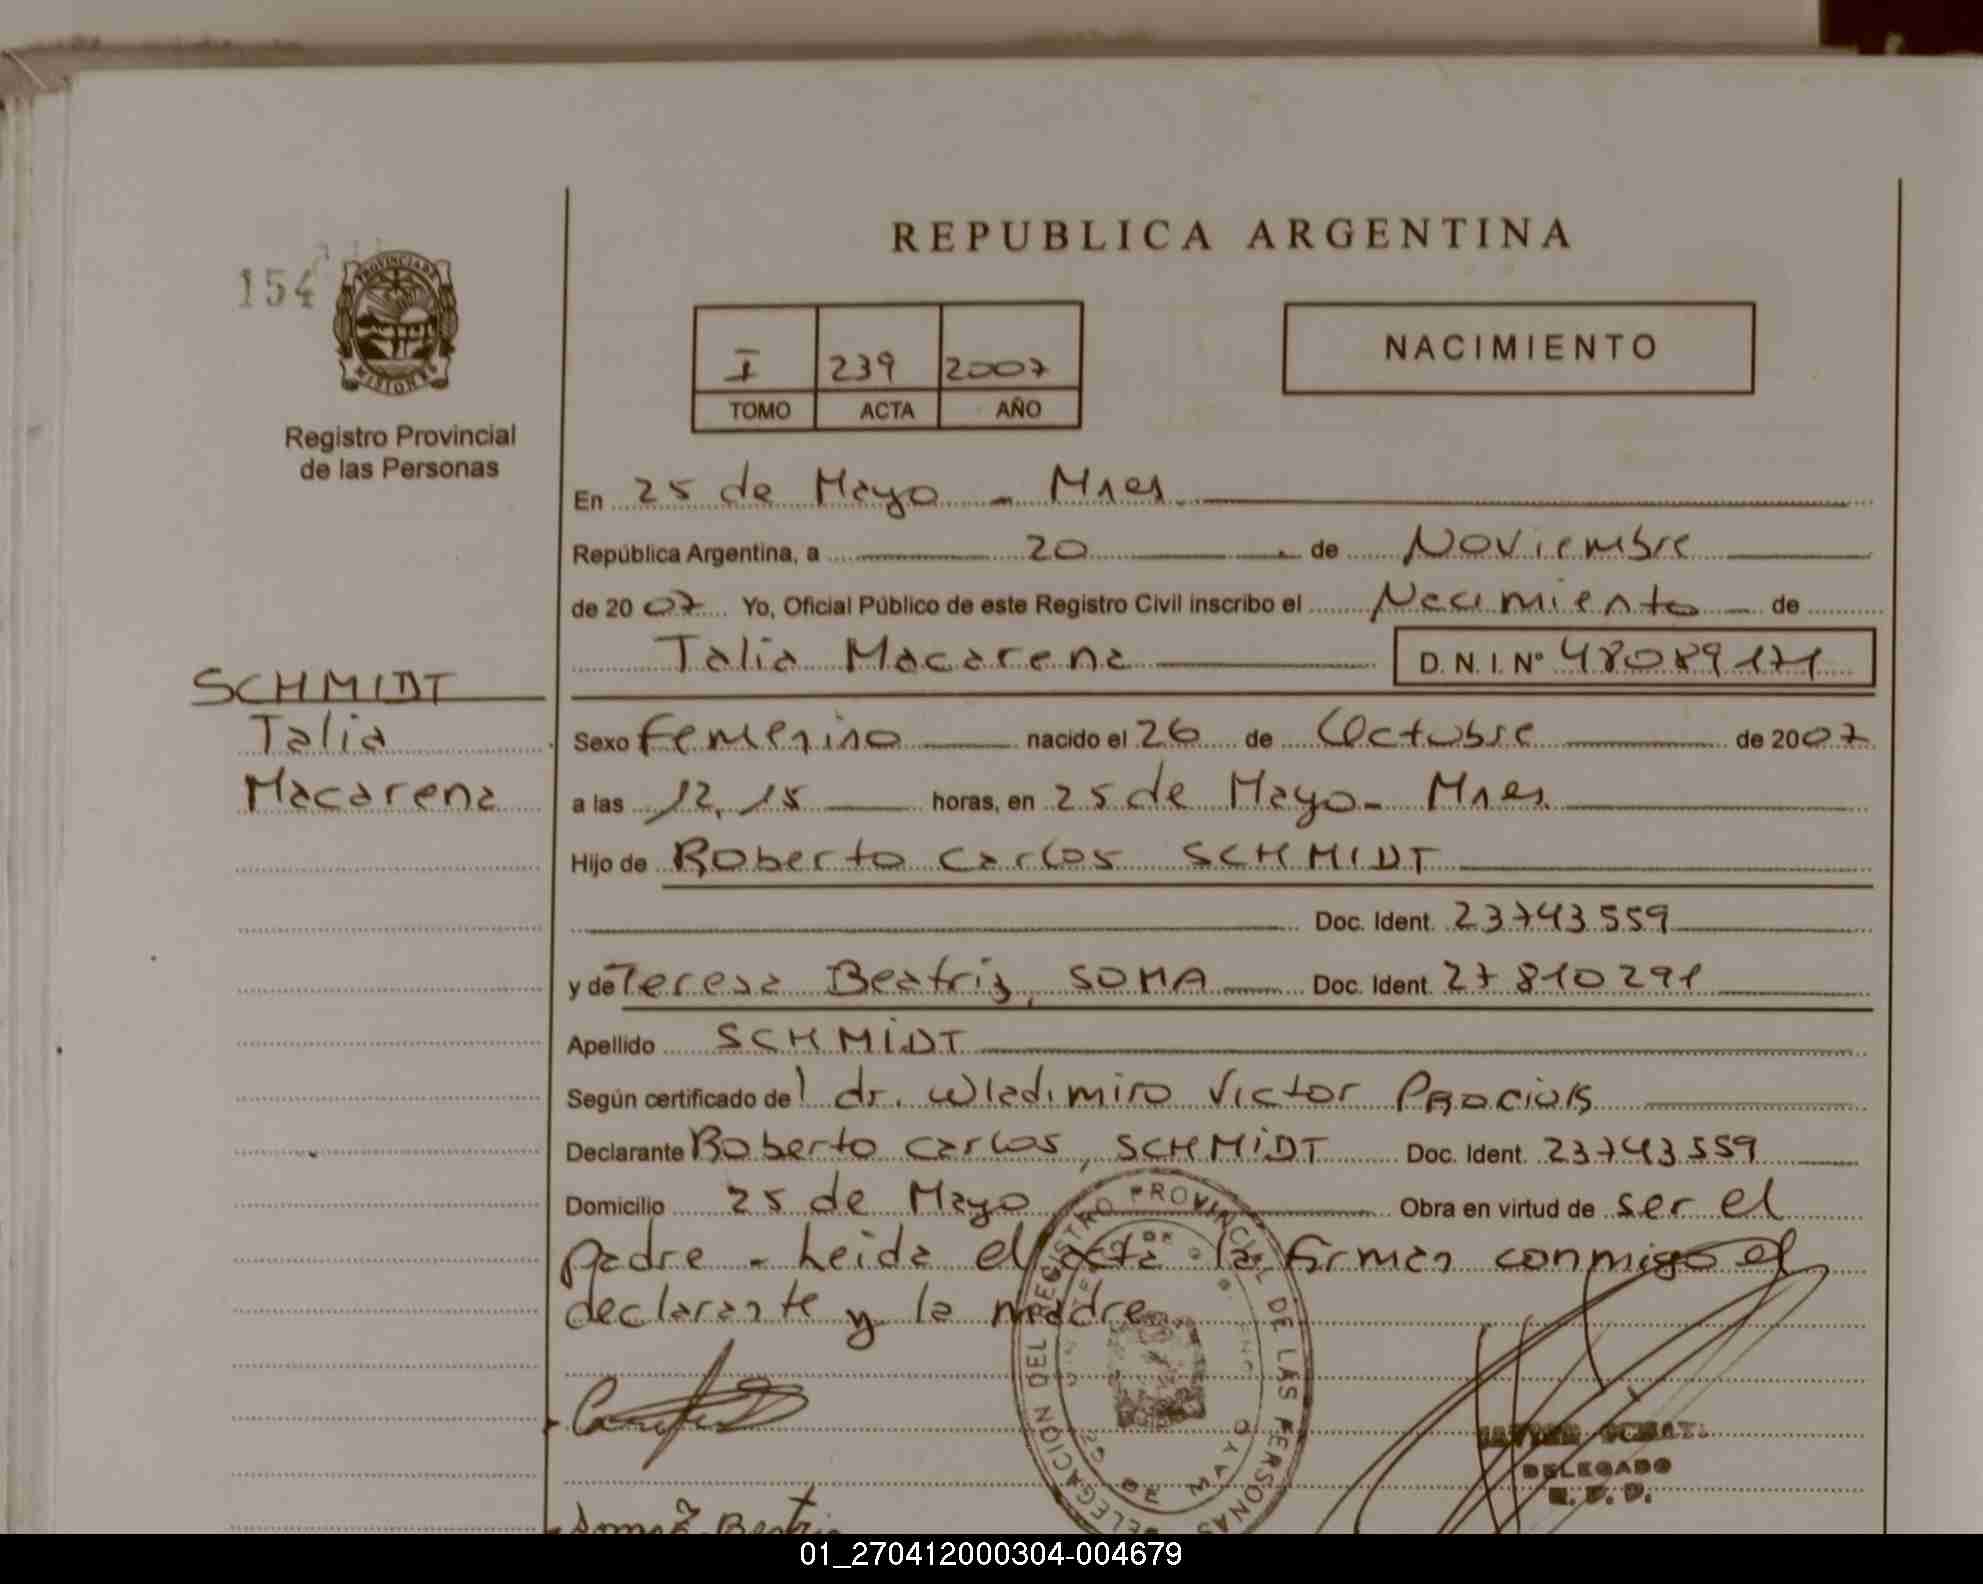 REPUBLICA ARGENTINA
154
PROVINCIA DE
MISIONES
Registro Provincial
de las Personas
I 239 2007
TOMO ACTA AÑO
NACIMIENTO
En 25 de Mayo - Mnes
República Argentina, a 20 de Noviembre
de 2007 Yo, Oficial Público de este Registro Civil inscribo el Nacimiento de
Talia Macarena D. N. I. Nº 48089171
SCHMIDT
Talia
Macarena
Sexo Femenino nacido el 26 de Octubre de 2007
a las 12,15 horas, en 25 de Mayo - Mnes.
Hijo de Roberto Carlos SCHMIDT
Doc. Ident. 23743559
y de Teresa Beatriz, SOMA Doc. Ident. 27810291
Apellido SCHMIDT
Según certificado del dr. Wladimiro Victor
Declarante Roberto Carlos, SCHMIDT Doc. Ident. 23743559
Domicilio 25 de Mayo Obra en virtud de ser el
padre - Leida el acta la firman conmigo el
declarante y la madre
DELEGACION DEL REGISTRO PROVINCIAL DE LAS PERSONAS
25 DE MAYO
DELEGADO
R. P. P.
Beatriz
01_270412000304-004679